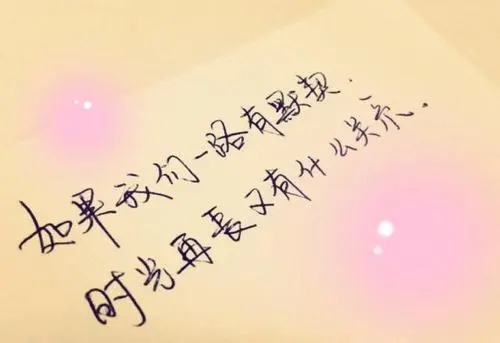 如果我们一路有默契.
时光再长又有什么关系.